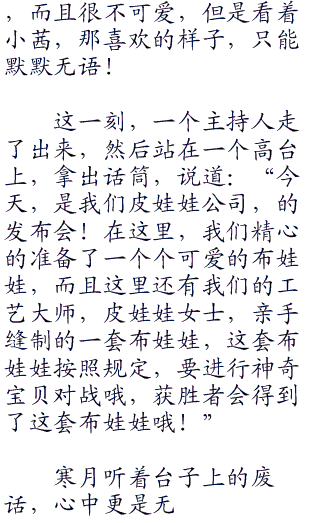 ，而且很不可爱，但是看着
小茜，那喜欢的样子，只能
默默无语！
这一刻，一个主持人走
了出来，然后站在一个高台
上，拿出话筒，说道：“今
天，是我们皮娃娃公司，的
发布会！在这里，我们精心
的准备了一个个可爱的布娃
娃，而且这里还有我们的工
艺大师，皮娃娃女士，亲手
缝制的一套布娃娃，这套布
娃娃按照规定，要进行神奇
宝贝对战哦，获胜者会得到
了这套布娃娃哦！”
寒月听着台子上的废
话，心中更是无